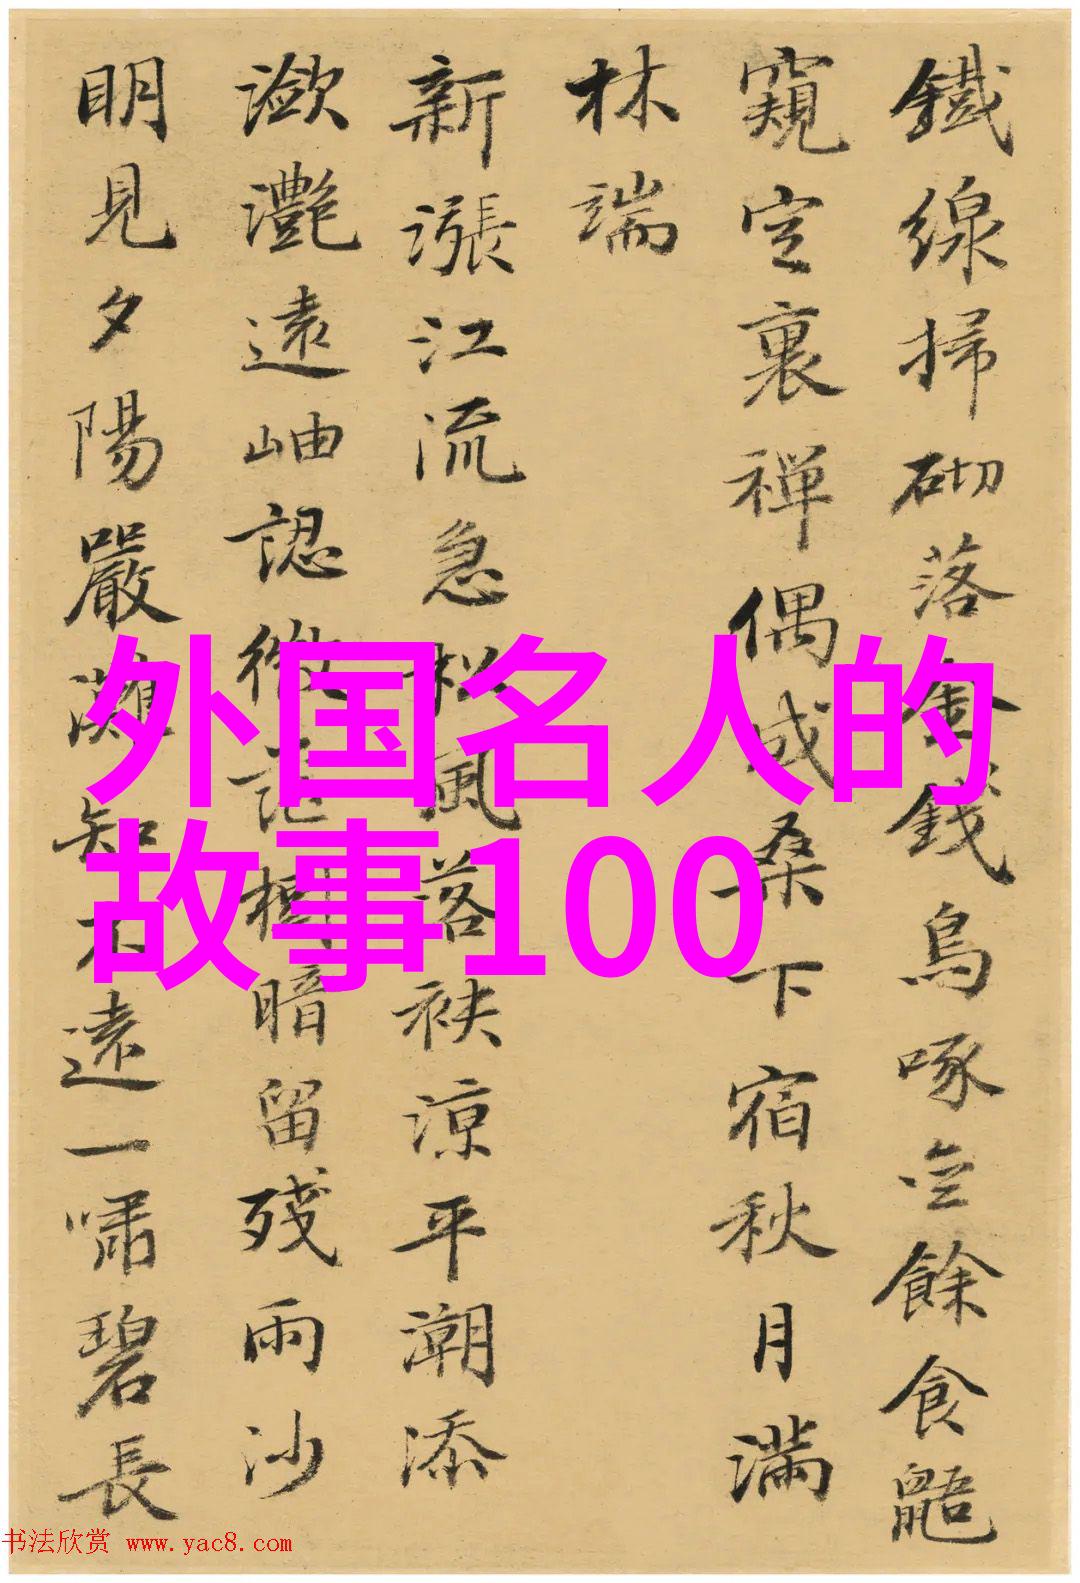 鐵線掃砌落金錢鳥啄空餘食鼯
窺定裏禪偶成桑下宿秋月滿
林端
新漲江流急松風落袂涼平潮添
瀲灩遠岫認微茫樹暗留殘雨沙
明見夕陽嚴瀨知不遠一嘯碧長
外国名人的
故事100
书法欣赏 www.yac8.com